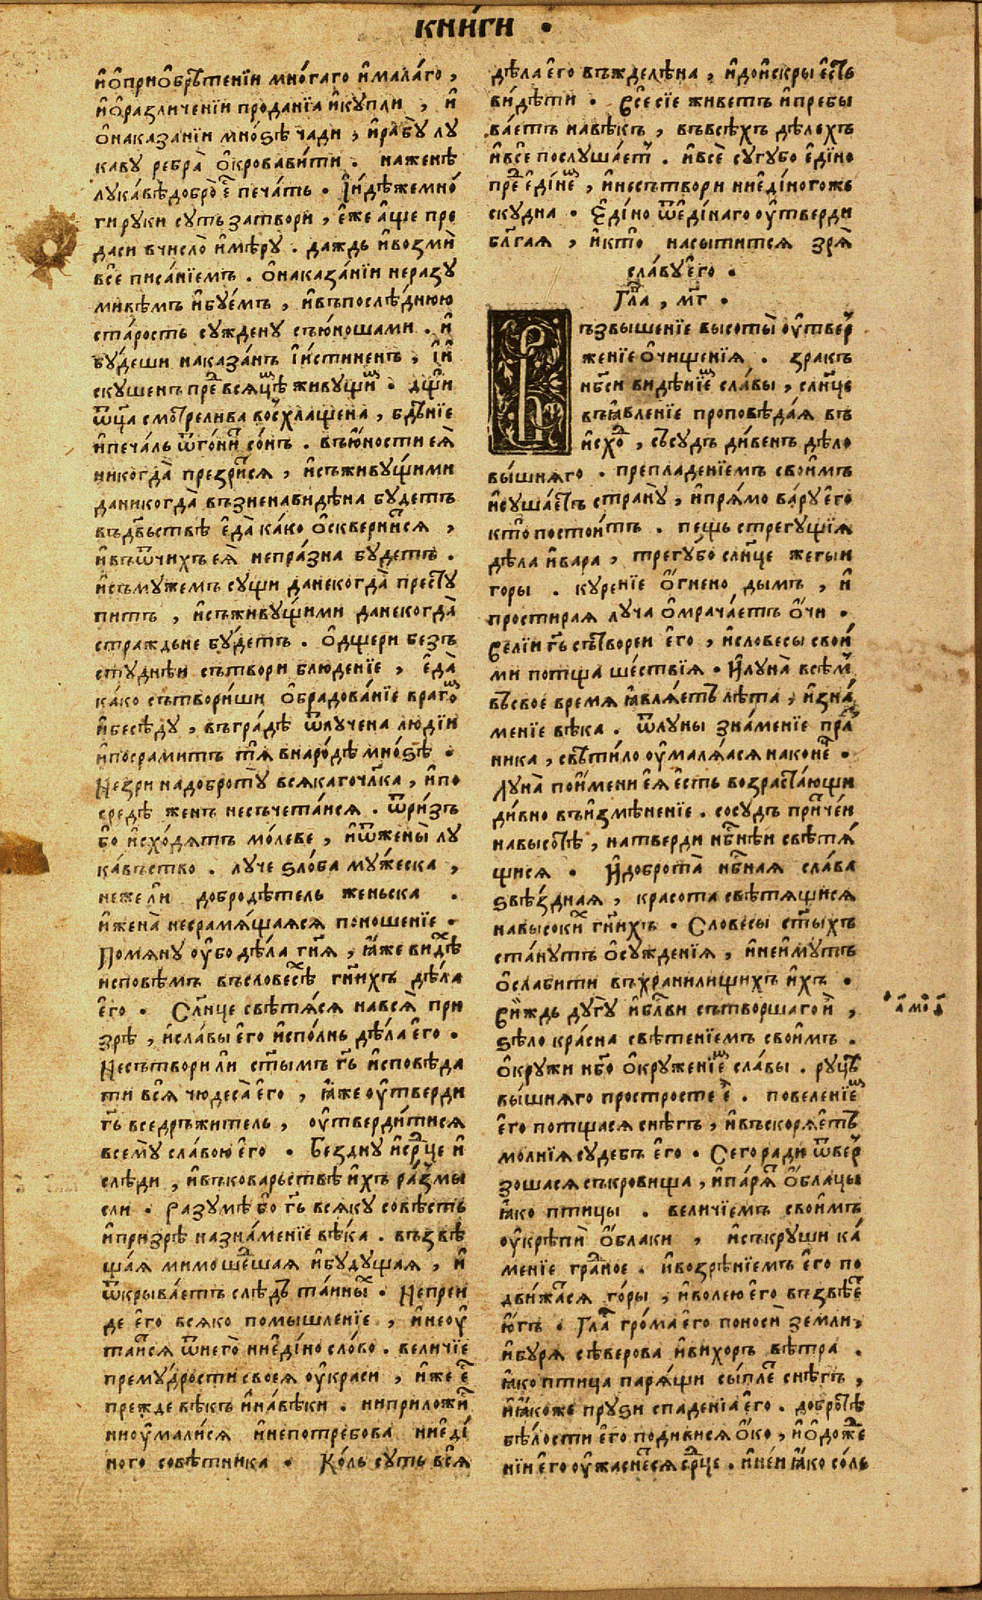 кни́ги .
и҆ ѡ҆ прио҆брѣ́тенїи мно́гаго и҆ ма́лаго ,
и҆ ѡ҆ разли́ченїи прода́нїа и҆ ку́пли , и҆
ѻ҆ наказа́нїи мно́ѕѣ ча́ди , и҆ рабꙋ̀ лꙋ
ка́вꙋ ребра̀ ѻ҆крова́вити . на женѣ̀
лꙋка́вѣ добро̀ є͇҆ печа́ть . І҆ и҆дѣ́же мно́
ги рꙋки сꙋть затвори , є҆́же а҆́ще пре
да́си в число̀ и҆ мѣ́рꙋ . да́ждь и҆ возми̑
всѐ писа́нїемъ . ѻ҆ наказа́нїи неразꙋ
ми́вѣмъ и҆ бꙋ́емъ , и҆ въ послѣ́днюю
ста́рость сꙋ́ждену съ ю҆ношами . и҆
бꙋ́деши наказа́нъ і҆ и҆стиненъ , і҆ и҆
скꙋ́шенъ прⷣе всяцѣⷨ живꙋщиⷨ . дщи́
ѿца смотрелива восхлащена , бдѣнїе
и҆ печа́ль ѿго́нѝ со́нъ . въ ю҆́ности еѧ̀
никогда̀ презри́тся , и҆ съ живꙋ́щими
да никогда̀ възненавидѣна бꙋдетъ
въ дв҃ьствѣ є҆да̀ ка́ко ѻ҆скверни́тся ,
и҆ въ ѿчихъ еѧ̀ непра́зна бꙋдетъ .
и҆ съ мꙋжемъ сꙋщи да некогда̀ престꙋ
питъ , и҆ съ живꙋ́щими да некогда̀
стра́ждьне бꙋ́детъ . Ѻ҆ дщери безъ
стꙋднѣи сътвори блюдение , є҆да̀
ка́ко сътвори́ши ѻ҆брадова́нїе врагоⷨ
и҆ бесѣдꙋ , въ гра́дѣ ѿлꙋчена лю́дїи
и҆ посрамитъ тѧ̀ в наро́дѣ мно́ѕѣ .
Не зри на добротꙋ̀ вся́каго чл҃ка , и҆ по
средѣ̀ женъ не съчета́ися . ѿ ри́зъ
бо и҆схо́дятъ мо́леве , и҆ ѿ жены̀ лꙋ
ка́въство . лꙋче ѕло́ба мꙋ́жеска ,
неже ли добродѣ́тель женьска .
и҆ жена̀ несрамя́щаяся поношенїе .
Помянꙋ ᲂу҆̀бо дѣ́ла гн҃я , ꙗ҆же видѣⷯ
исповѣмъ въ словесѣⷯ гн҃ихъ дѣ́ла
є҆го̀ . Сл҃нце свѣтѧ́ся на всѧ̀ при
зрѣ̀ , и҆ сла́вы є҆го̀ и҆спо́лнь дѣ́ла є҆го̀ .
Не сътвори ли ст҃ымъ гь҃ и҆сповѣда
ти всѧ̀ чюдеса̀ є҆го̀ , ꙗ҆́же ᲂу҆твердѝ
гь҃ вседръжитель , ᲂу҆тверди́тися
всемꙋ̀ сла́вою є҆го̀ . Бе́зднꙋ и҆ срⷣце и҆
слѣдѝ , и҆ въ коварьствѣ и҆́хъ разꙋмы
сли . Разꙋмѣ̀ бо гь҃ всякꙋ со́вѣсть
и҆ призрѣ̀ на зна́менїе вѣка . възвѣ
ща́я мимошеⷣшая и҆ бꙋдꙋщая , и҆
ѿкрыва́етъ слѣдъ та́йныⷯ . Не прѐи
де є҆го̀ всяко помышлєнїе , и҆ не ᲂу҆
таи́ся ѿ него̀ ни є҆ди́но сло́во . вели́чїе
премꙋ́дрости своея̀ ᲂу҆красѝ , и҆́же є͇҆
прежде вѣ́къ и҆ на́вѣки . ни приложи́
ни ᲂу҆мали́ся и҆ непотребова ни є҆ди́
ного совѣтника . Ко́ль сꙋть всѧ̀
дѣла є҆го̀ въжделѣна , и҆ до и҆скры є҆сть
ви́дѣти . Всѐ сїе живетъ и҆ пребы
ва́етъ на вѣкъ , въ всѣхъ дѣлехъ
и҆ всѐ послꙋша́етъ . и҆ всѐ сꙋгꙋбо є҆ди́но
преⷣ є҆ди́неⷨ , и҆ не сътвори ни є҆ди́ного же
скꙋдна . Є҆ди́но ѿ є҆ди́наго ᲂу҆твердѝ
бл҃гая , и҆ кто̀ насытится зря̀
сла́вꙋ є҆го̀ .
Гла , мг .
Възвышенїе высоты̀ ᲂу҆твер
женїе ѻ҆чищенїя . зракъ
нб҃си видѣнїеⷨ сла́вы , сл҃нце
въ ꙗ҆вленїе проповѣ́дая въ
и҆схоⷣ , съсꙋдъ ди́венъ дѣ́ло
вы́шняго . препладенїемъ свои́мъ
и҆сꙋша́етъ странꙋ̀ , и҆ пря́мо ва́рꙋ є҆го̀
кто̀ постои́тъ . пещь стрегꙋщїя
дѣ́ла и҆ вара , трегꙋ́бо сл҃нце жегы́и
горы . кꙋренїе ѻ҆́гнено дымъ , и҆
простирая лꙋча ѻ҆мрача́етъ ѻ҆́чи .
Ве́лїи гь҃ сътворе́и є҆го̀ , и҆ словесы свои́
ми потща ше́ствїя . И҆ лꙋна̀ всѣмⷨ
въ свое́ время ꙗ҆вляетъ лѣта , и҆ зна́
менїе вѣ́ка . ѿ лꙋны зна́менїе праⷥ
ника , свѣти́ло ᲂу҆маля́яся на коне́ц .
Лꙋна̀ по и҆мени єѧ̀ є҆сть возраста́ющи
ди́вно въ и҆змѣ́ненїе . сосꙋдъ при́чен
на высотѣ̀ , на тверди нб҃нѣи свѣтя́
щися . И҆ доброта̀ нб҃ная сла́ва
ѕвѣ́здная , красота свѣтѧщися
на высокиⷯ гн҃ихъ . Словесы̀ ст҃ыхъ
ста́нꙋтъ ѻ҆сꙋжденїя , и҆ не и҆мꙋтъ
ѻ҆слабити въ храни́лищихъ и҆́хъ .
Ви́ждь дꙋгꙋ и҆ бл҃ви сътворшаго ѝ ,
ѕѣло́ кра́сна свѣтенїемъ свои́мъ .
Ѻ҆крꙋжи нб҃о ѻ҆крꙋженїеⷨ сла́вы . рꙋцѣ
вы́шняго простросте є҆̀ . повеленїеⷨ
є҆го̀ потщася снѣгъ , и҆ въскоря́етъ
мо́лнїя сꙋдебъ є҆го̀ . Сего ради ѿвер
зошася съкровища , и҆ паря́т ѻ҆блацы
ꙗ҆ко птицы . вели́чїемъ свои́мъ
ᲂу҆крѣпѝ ѻ҆́блаки , и҆ съкрꙋши ка́
менїе граⷣное . и҆ возрѣнїемъ є҆го̀ по
дви́жася го́ры , и҆ волею є҆го̀ възвѣет
ю҆́гъ . Глаⷭ гро́ма є҆го̀ поносѝ земли́ ,
и҆ бꙋря сѣверова и҆ вихоръ вѣ́тра .
ꙗ҆ко птица паря́щи сы́плет снѣгъ ,
и҆ ꙗ҆коже прꙋзи спаденїа є҆го̀ . добротѣ̀
бѣлости є҆го̀ подивися ѻ҆́ко , и҆ ѻ҆ дожⷣе
нїи є҆го̀ ᲂу҆жаснется срⷣце . и҆ не́и ꙗ҆ко со́ль